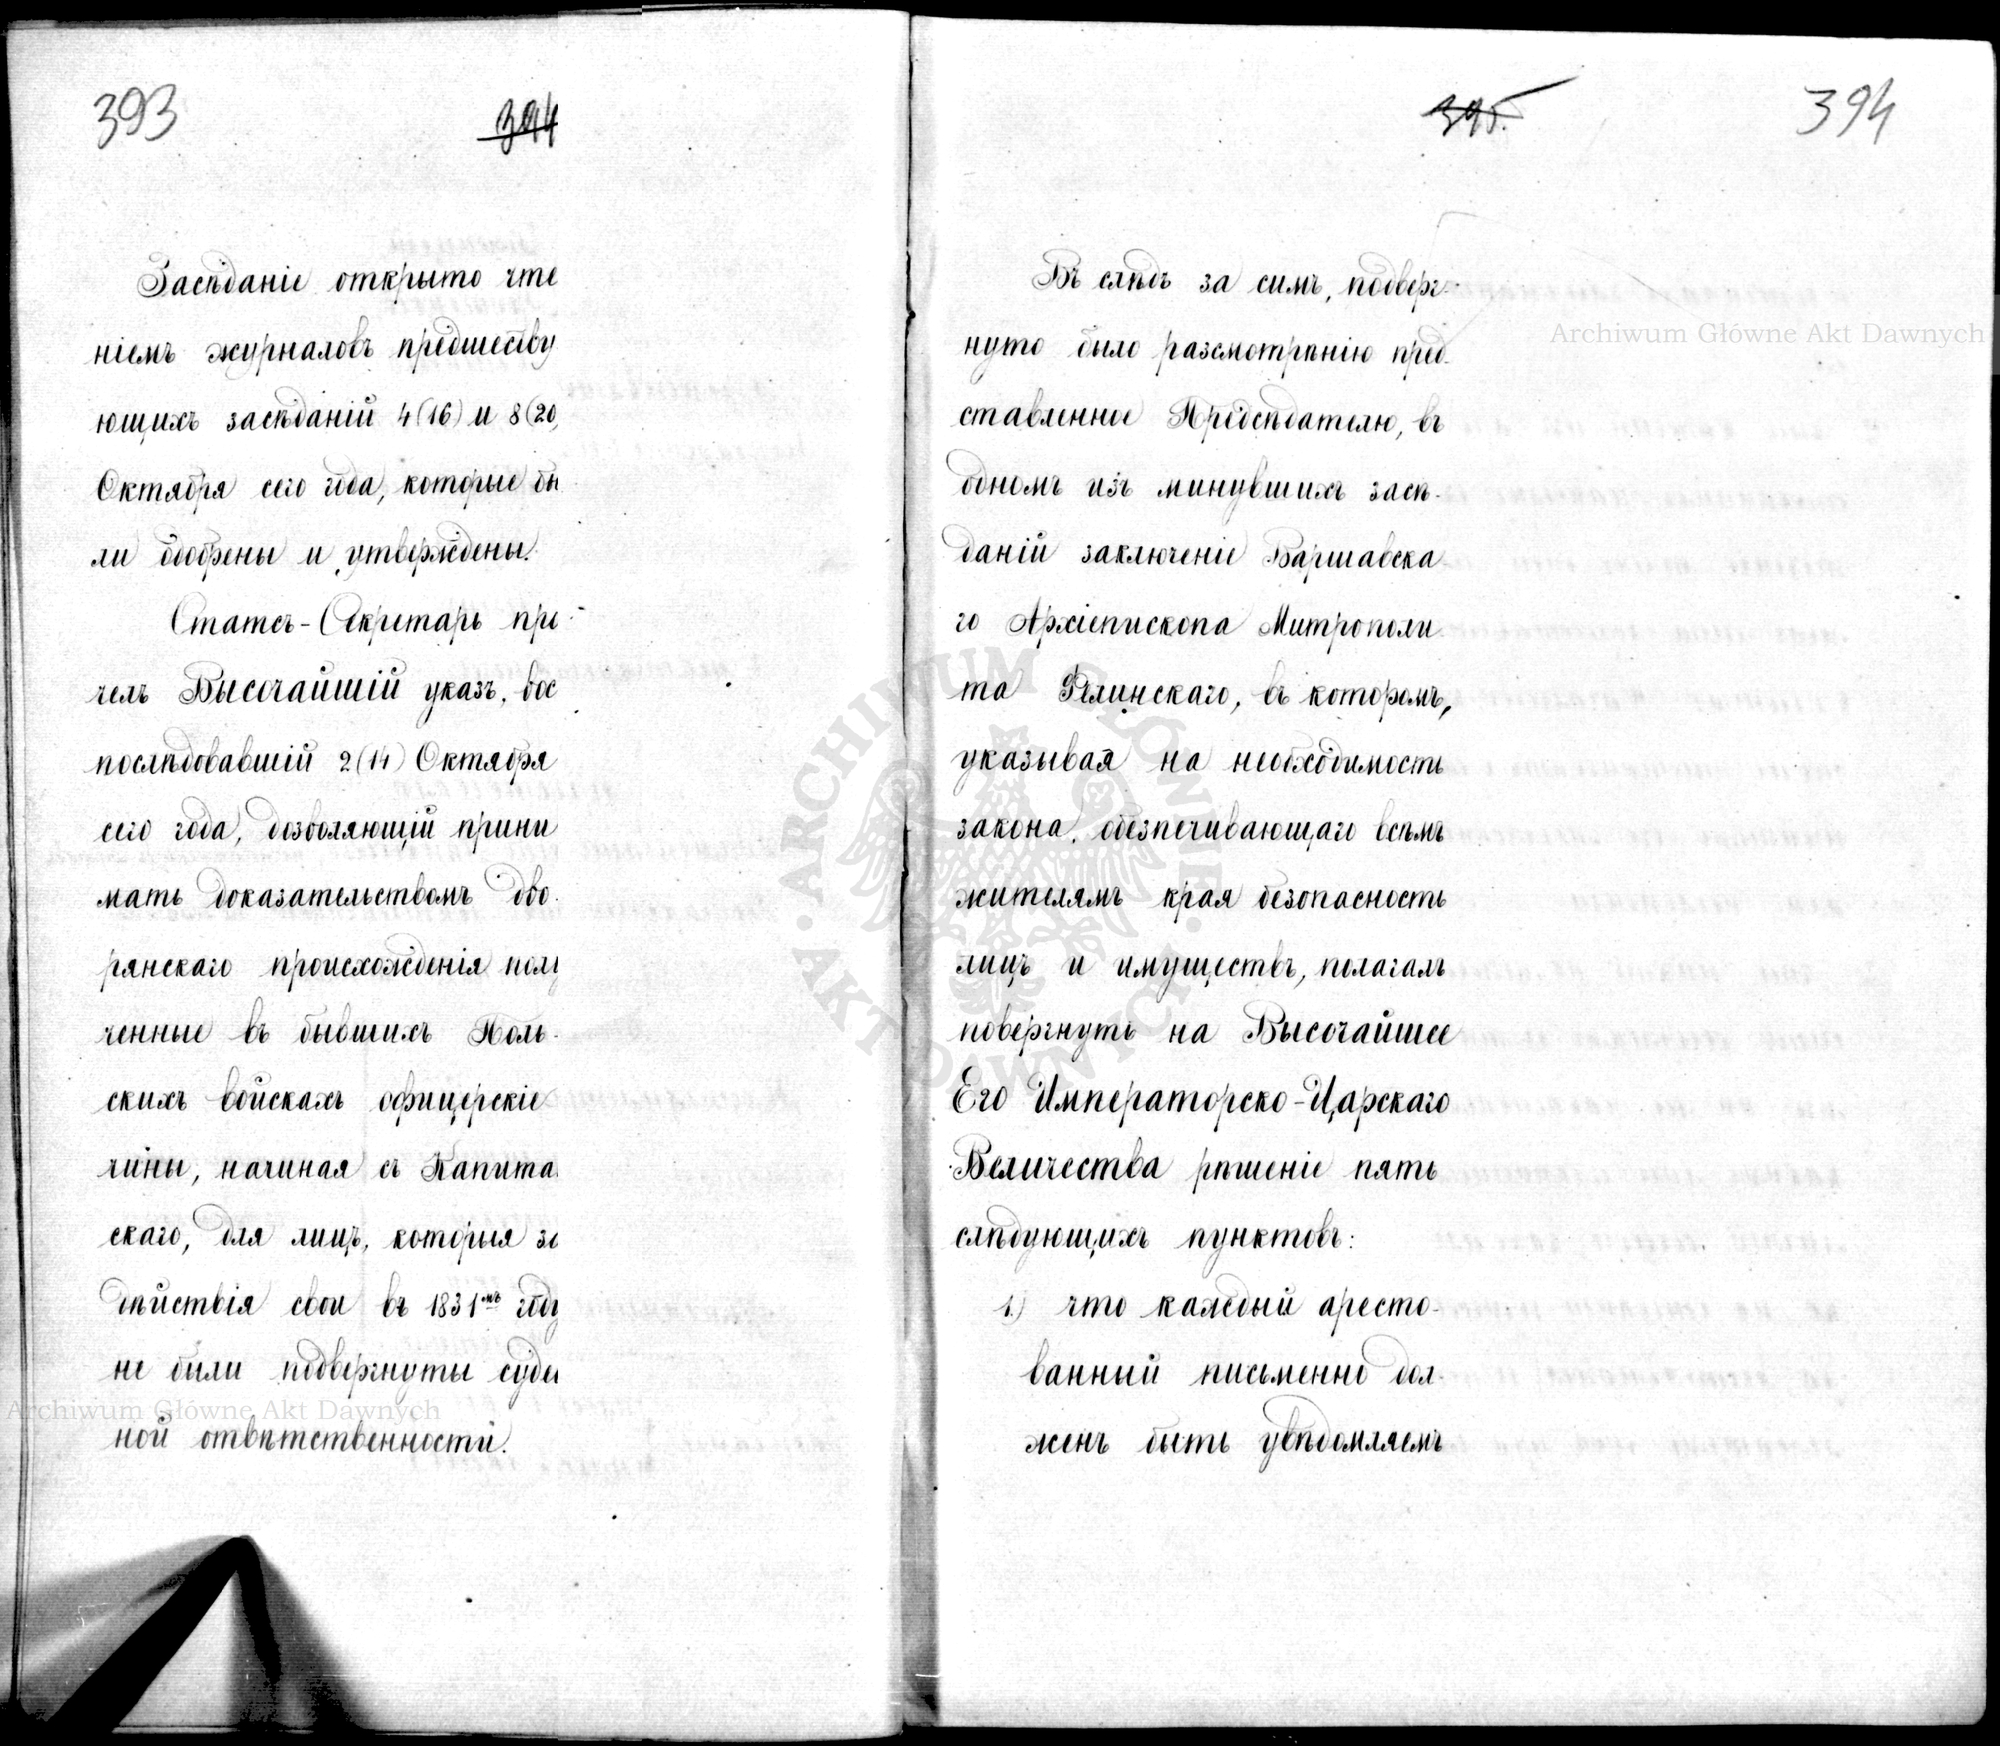 393
394
Засѣданіе открыто чте
ніемъ журналовъ предшеству
ющихъ засѣданій 4(16) и 8(20)
Октября сего года, которые бы
ли одобрены и утверждены.
Статсъ-Секретарь про-
челъ Высочайшій указъ, вос
послѣдовавшій 2(14) Октября
сего года, дозволяющій прини
мать доказательствомъ дво-
рянскаго происхожденія полу
ченные въ бывшихъ Поль-
скихъ войскахъ офицерскіе
чины, начиная съ Капитан
скаго, для лицъ, которыя за
дѣйствія свои въ 1831мъ году
не были подвергнуты судеб
ной отвѣтственности.
Archiwum Główne Akt Dawnych
395.
394
Въ слѣдъ за симъ, подверг-
нуто было разсмотрѣнію пред-
ставленное Предсѣдателю, въ
одномъ изъ минувшихъ засѣ-
даній заключеніе Варшавска
го Архіепископа Митрополи
та Фелинскаго, въ которомъ,
указывая на необходимость
закона, обезпечивающаго всѣмъ
жителямъ края безопасность
лицъ и имуществъ, полагалъ
повергнуть на Высочайшее
Его Императорско-Царскаго
Величества рѣшеніе пять
слѣдующихъ пунктовъ:
1.) что каждый аресто-
ванный письменно дол-
женъ быть увѣдомляемъ
Archiwum Główne Akt Dawnych
ARCHIWUM GŁÓWNE AKT DAWNYCH